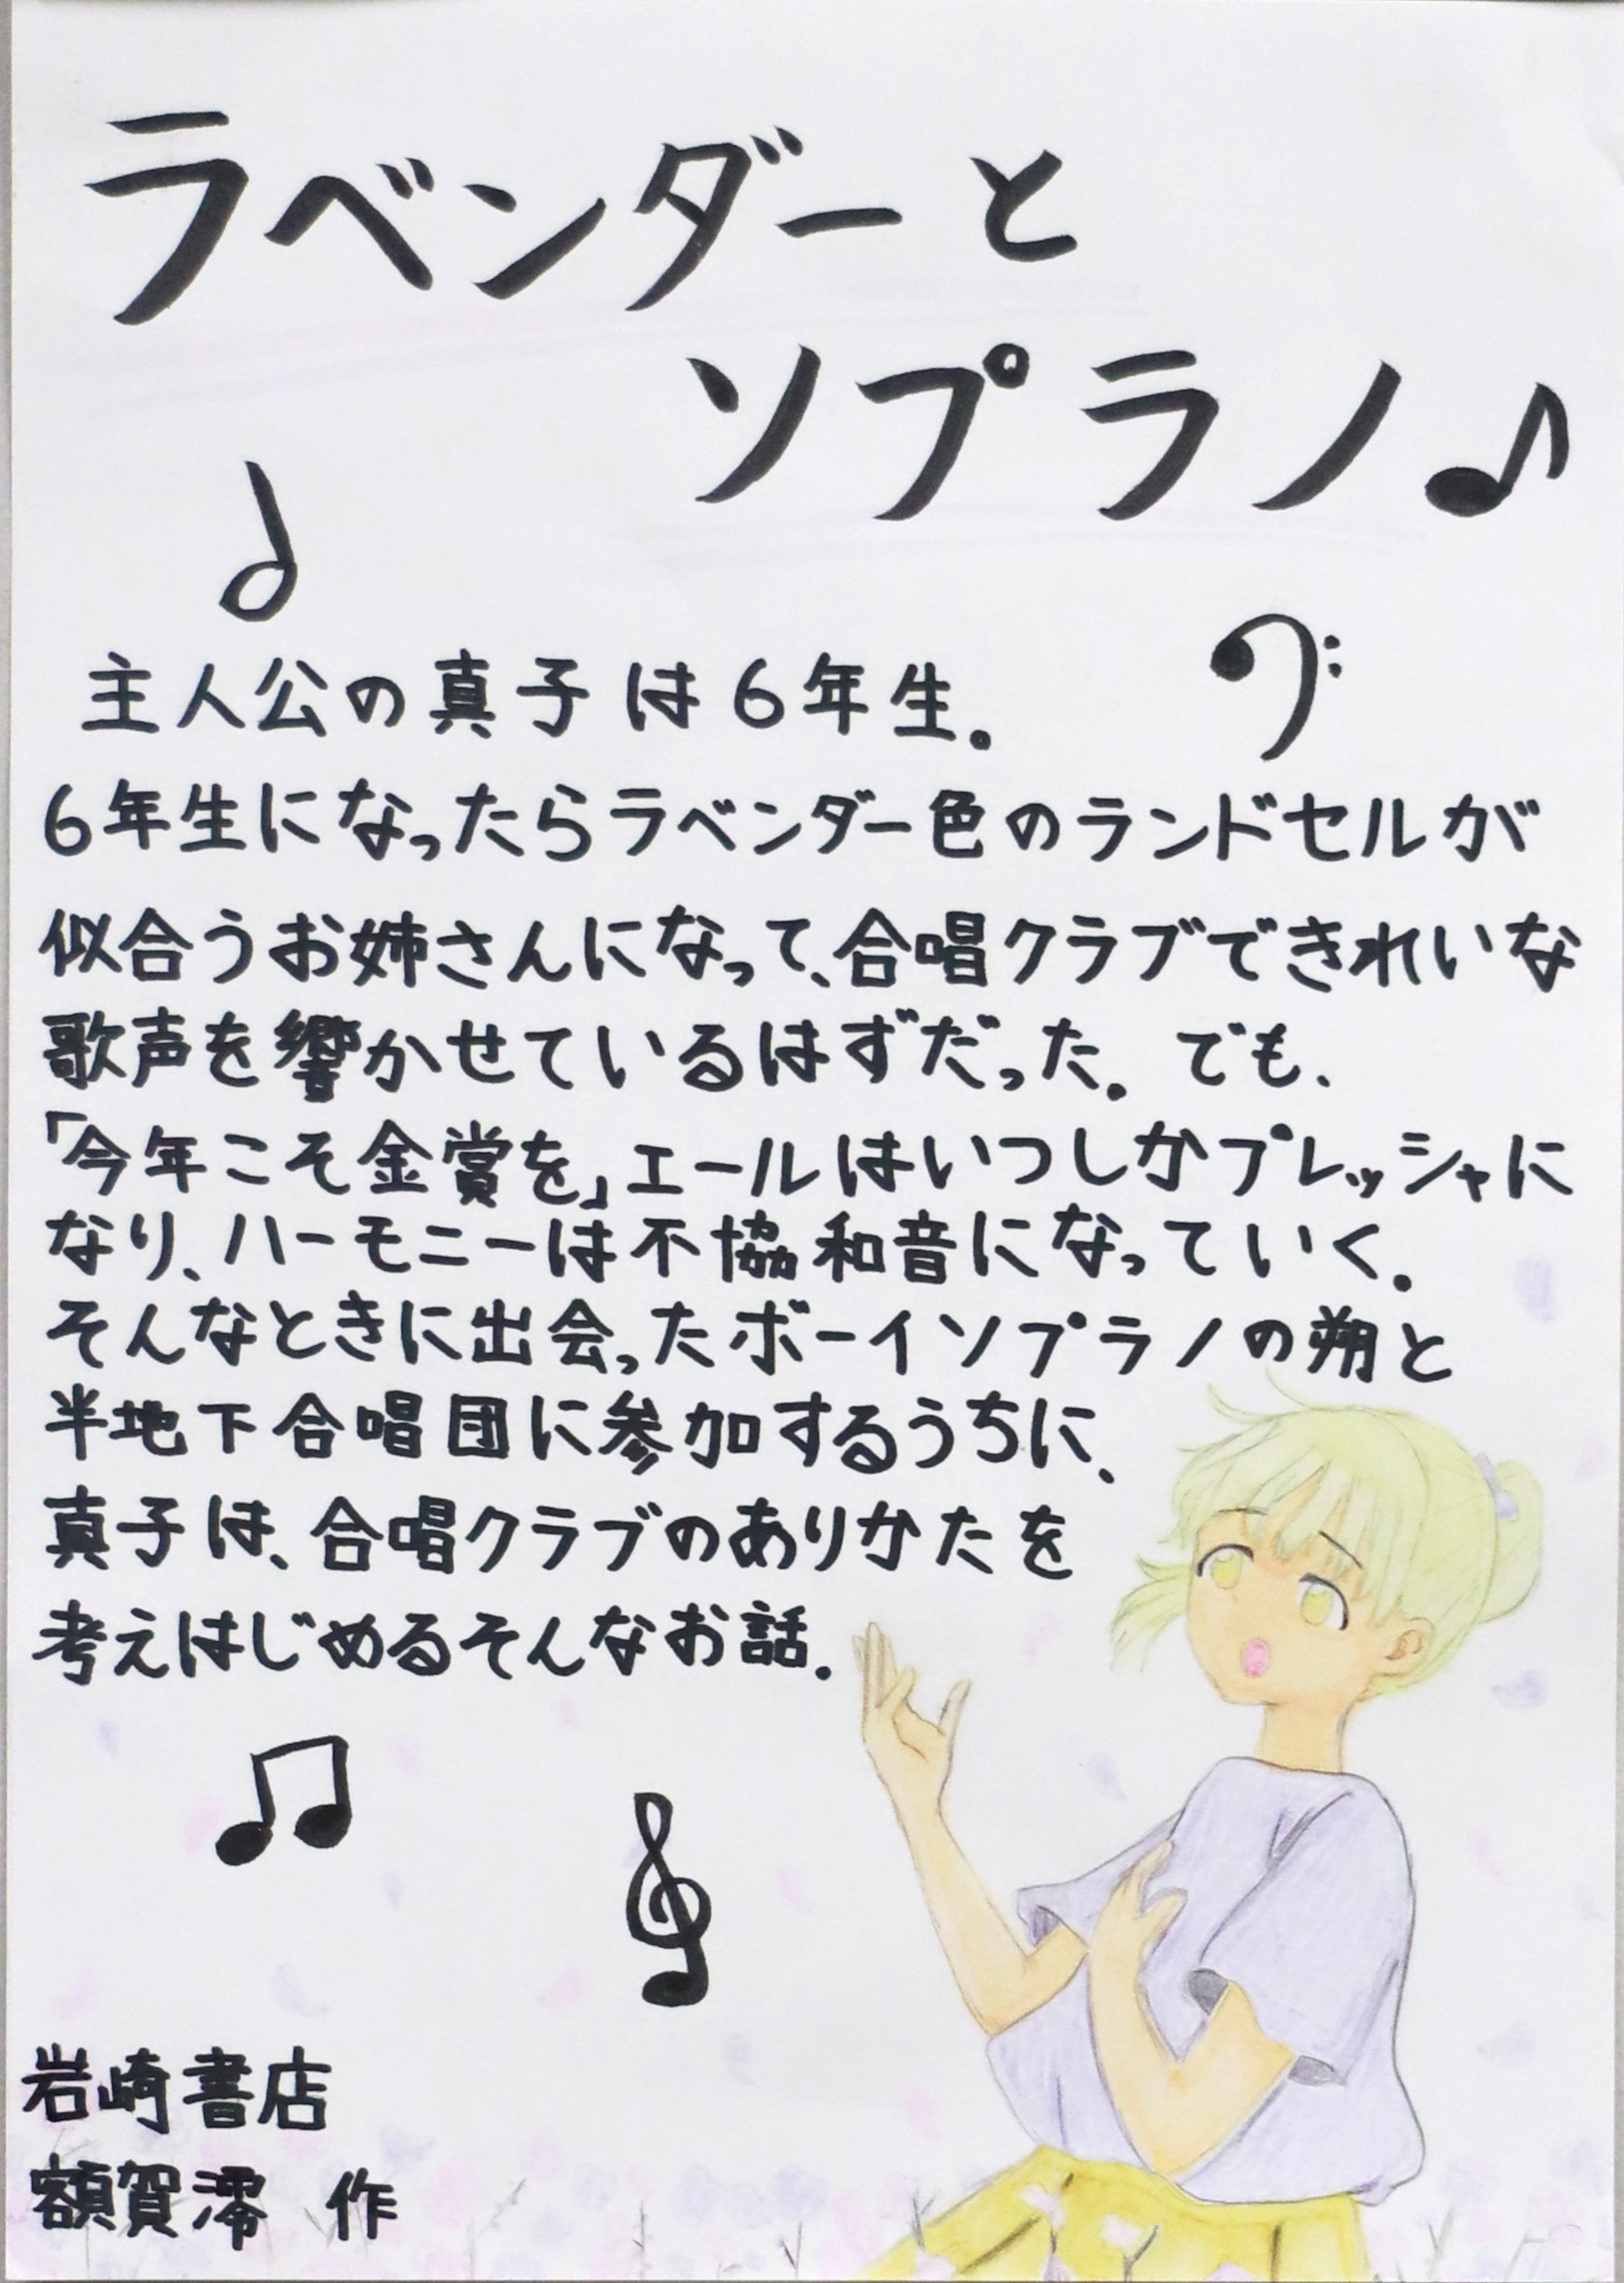 ラベンダーと
ソプラノ♪
主人公の真子は6年生。
6年生になったらラベンダー色のランドセルが
似合うお姉さんになって、合唱クラブできれいな
歌声を響かせているはずだった。でも、
「今年こそ金賞を」エールはいつしかプレッシャに
なり、ハーモニーは不協和音になっていく。
そんなときに出会ったボーイソプラノの朔と
半地下合唱団に参加するうちに、
真子は、合唱クラブのありかたを
考えはじめるそんなお話。
岩崎書店
額賀澪 作